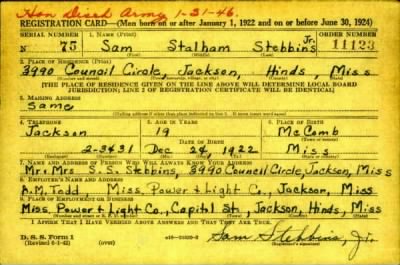 Hon Discd Army 1-31-46
REGISTRATION CARD—(Men born on or after January 1, 1922 and on or before June 30, 1924)
SERIAL NUMBER 1. NAME (Print) ORDER NUMBER
N 75 Sam Stalham Stebbins Jr. 11123
2. PLACE OF RESIDENCE (Print)
3990 Council Circle, Jackson, Hinds, Miss
[THE PLACE OF RESIDENCE GIVEN ON THE LINE ABOVE WILL DETERMINE LOCAL BOARD
JURISDICTION; LINE 2 OF REGISTRATION CERTIFICATE WILL BE IDENTICAL]
3. MAILING ADDRESS
Same
4. TELEPHONE 5. AGE IN YEARS 6. PLACE OF BIRTH
Jackson 19 McComb
DATE OF BIRTH
2-3431 Dec 24, 1922 Miss
7. NAME AND ADDRESS OF PERSON WHO WILL ALWAYS KNOW YOUR ADDRESS
Mr. Mrs S. S. Stebbins, 3990 Council Circle, Jackson, Miss
8. EMPLOYER'S NAME AND ADDRESS
A.M. Todd Miss. Power & Light Co., Jackson, Miss
9. PLACE OF EMPLOYMENT OR BUSINESS
Miss. Power & Light Co., Capitol St., Jackson, Hinds, Miss
I AFFIRM THAT I HAVE VERIFIED ABOVE ANSWERS AND THAT THEY ARE TRUE.
D. S. S. Form 1
(Revised 6-1-42) (over) Sam Stebbins, Jr.
(Registrant's signature)